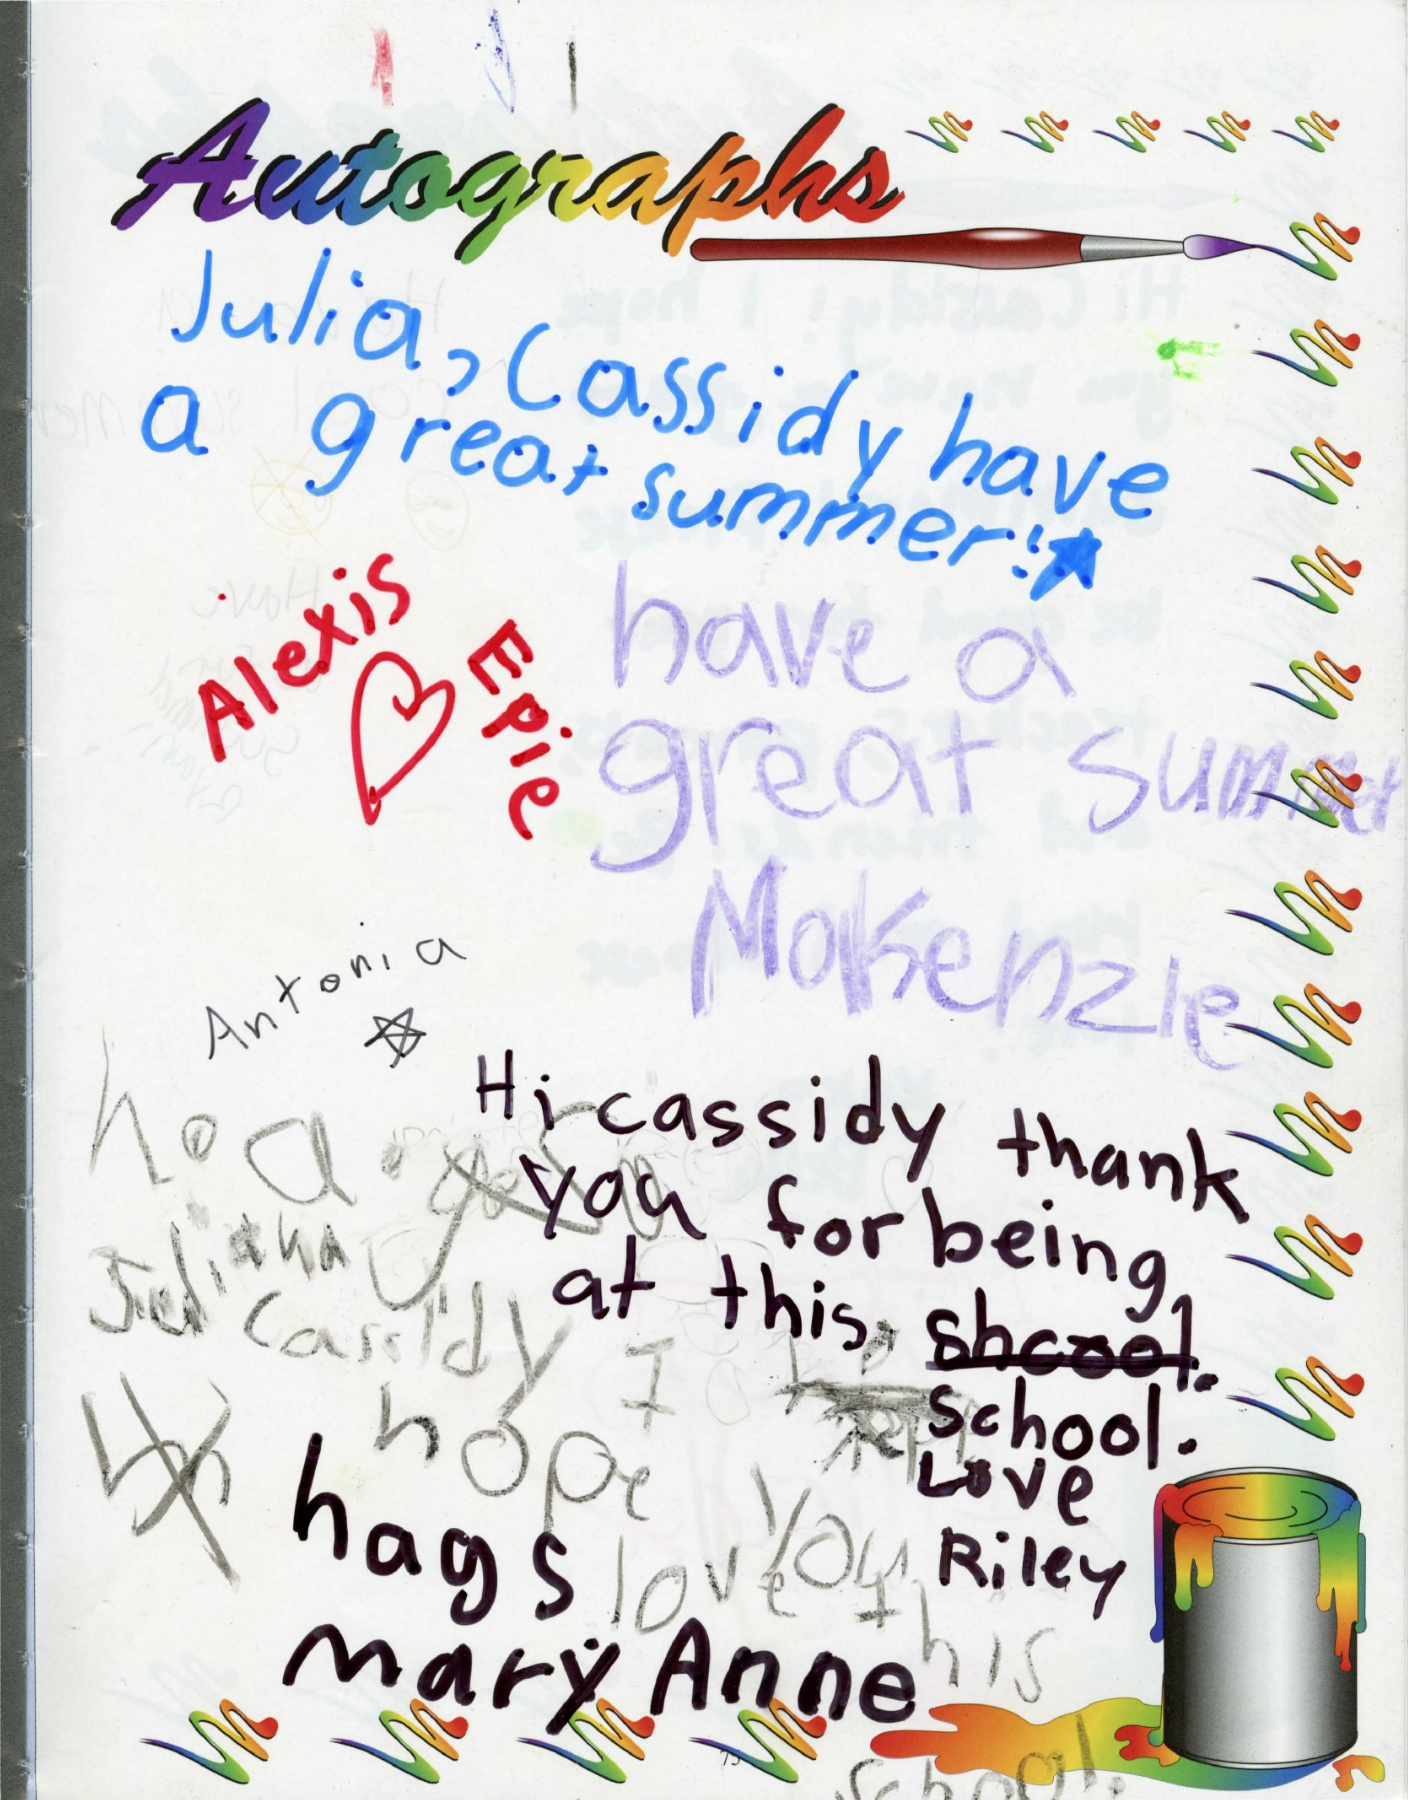 Autographs
Julia, Cassidy have
a great summer!
Alexis
Epie
have a
great summer
Makenzie
Antonia
Hi cassidy thank
you for being
at this shcool.
School.
Love
Riley
Juliana
Cassidy I
hope
love you
this
school.
hags
mary Anne